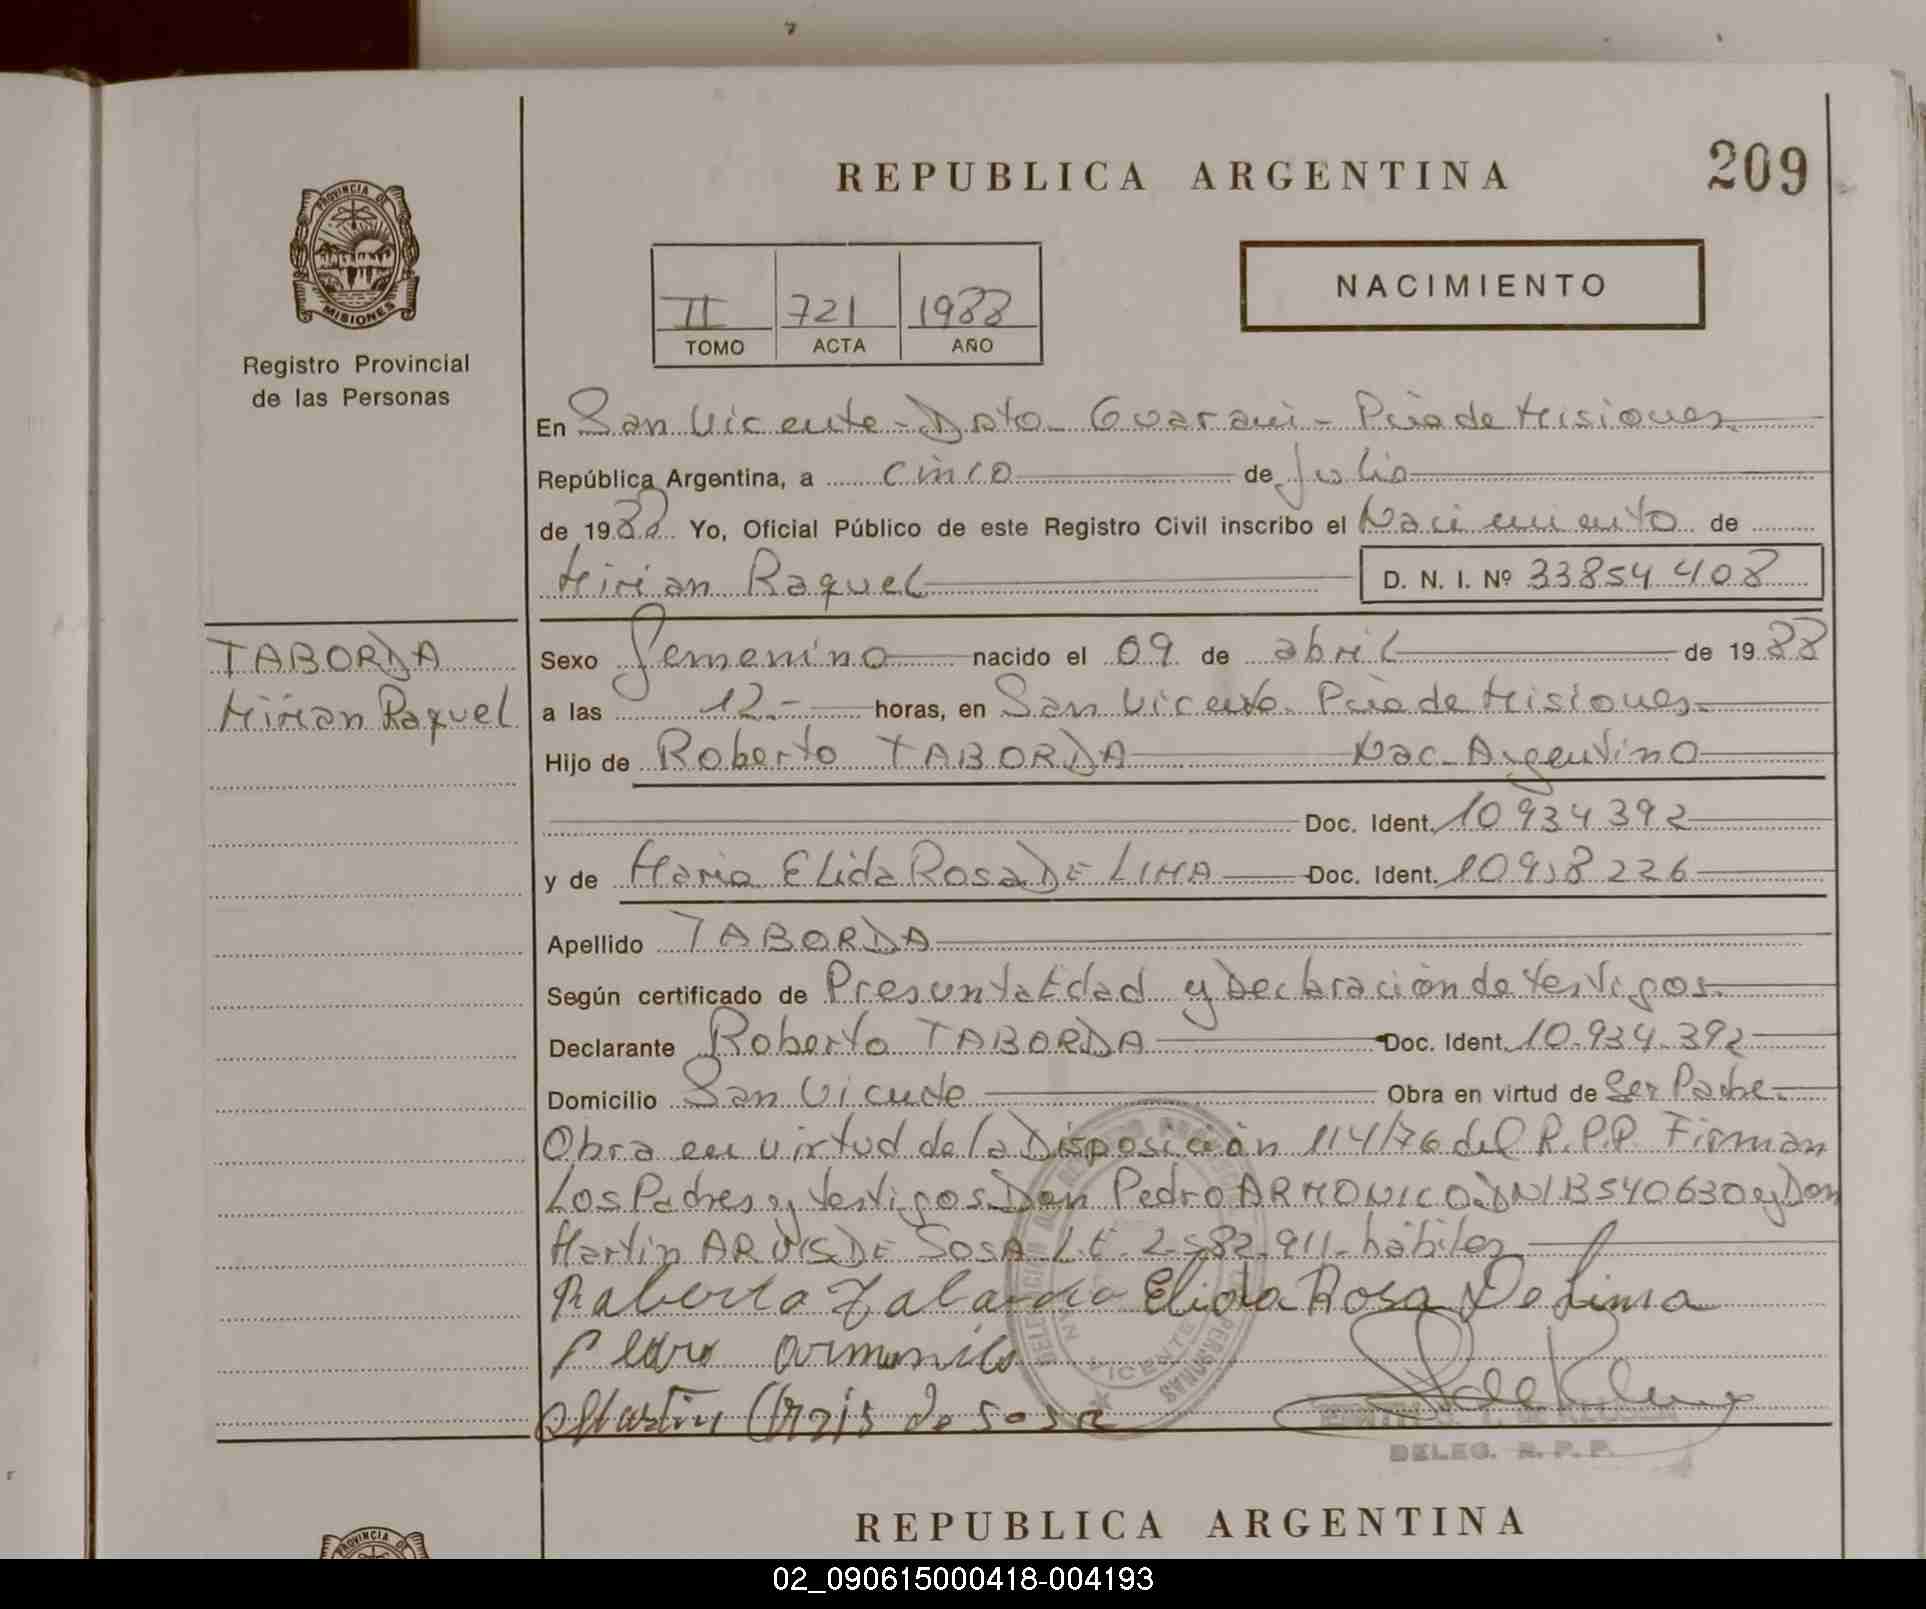 REPUBLICA ARGENTINA
209
PROVINCIA DE
MISIONES
Registro Provincial
de las Personas
II 721 1988
TOMO ACTA AÑO
NACIMIENTO
En San Vicente - Dpto. Guarani - Pcia de Misiones
República Argentina, a cinco de Julio
de 1988 Yo, Oficial Público de este Registro Civil inscribo el Nacimiento de
Mirian Raquel D. N. I. Nº 33854408
TABORDA
Mirian Raquel
Sexo Femenino nacido el 09 de abril de 1988
a las 12.- horas, en San Vicente. Pcia de Misiones.
Hijo de Roberto TABORDA Nac. Argentino
Doc. Ident. 10934392
y de Maria Elida Rosa DE LIMA Doc. Ident. 10918226
Apellido TABORDA
Según certificado de Presunta Edad y Declaración de testigos.
Declarante Roberto TABORDA Doc. Ident. 10.934.392
Domicilio San Vicente Obra en virtud de Ser Padre.
Obra en virtud de la Disposición 114/76 del R.P.P. Firman
Los Padres y testigos Don Pedro ARMONICO DNI 13540630 y Don
Martin DE SOSA L.E. 2.582.911. hábiles
Roberto Taborda Elida Rosa De Lima
Pedro Armonico
Martin de Sosa
DELEG. R. P. P.
REPUBLICA ARGENTINA
PROVINCIA DE
02_090615000418-004193